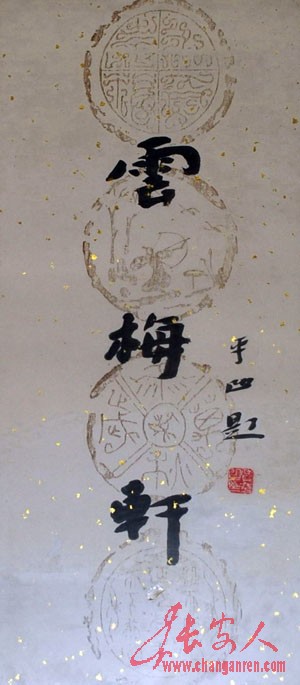 雲梅軒
平凹題
长安人
www.changanren.com